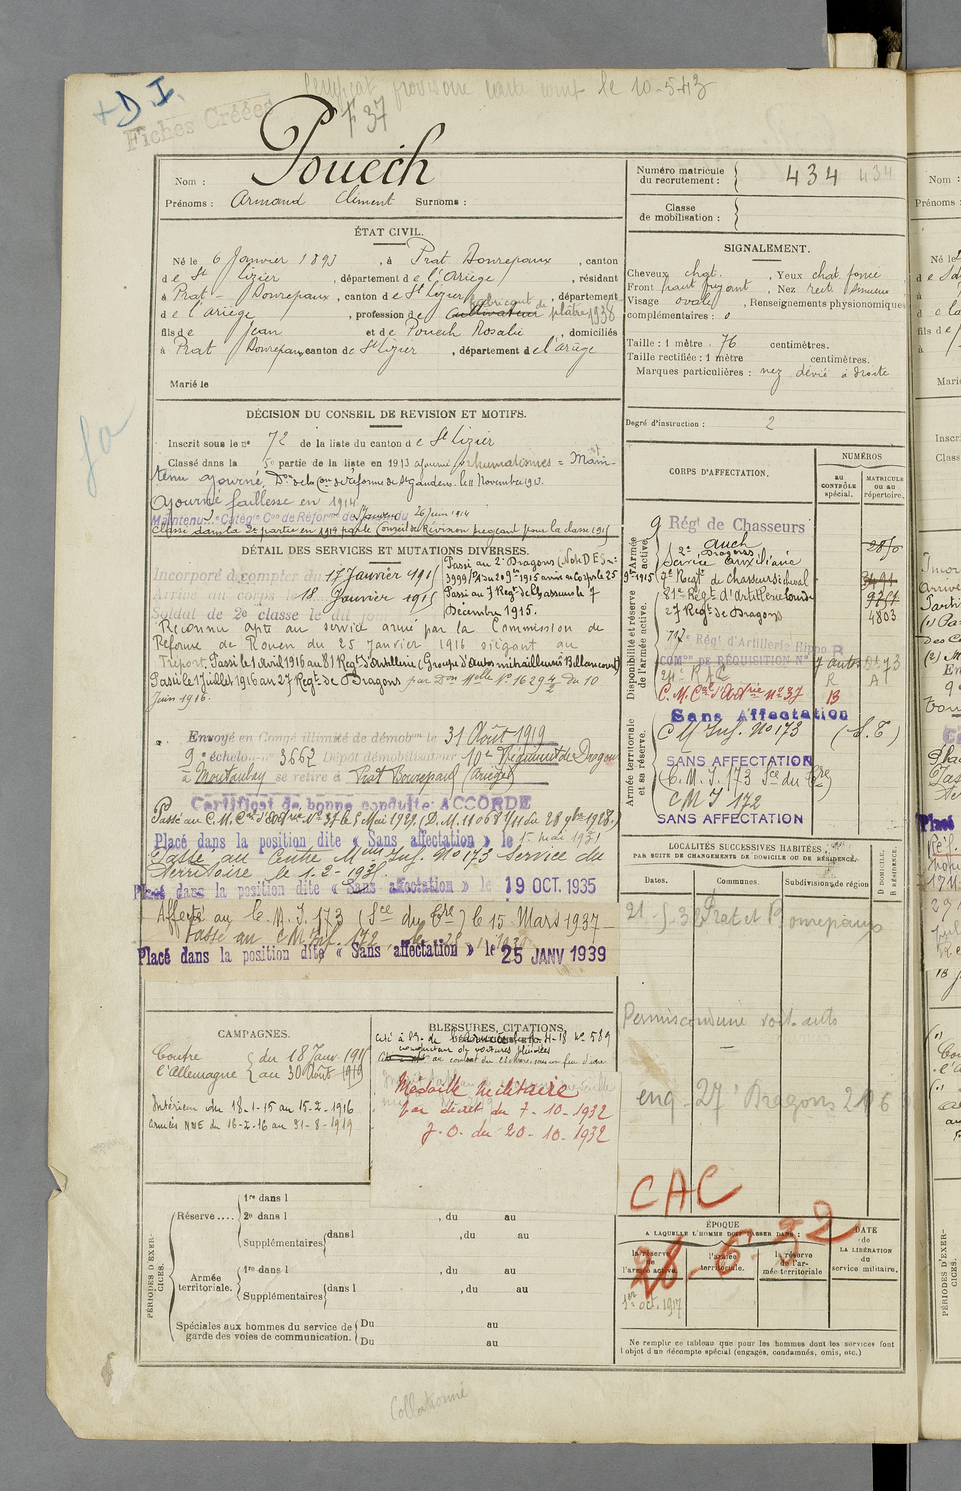 + D.I.
Fiches Créées
Certificat provisoire carte comt le 10-5-43
F 37
Nom : Pouech
Prénoms : Armand Clément Surnoms :
Numéro matricule du recrutement : 434 434
Classe de mobilisation :
ÉTAT CIVIL.
Né le 6 Janvier 1893, à Prat Bonrepaux, canton
de St Lizier, département de l'Ariège, résidant
à Prat-Bonrepaux, canton de St Lizier, département
de l'Ariège, profession de cultivateur fabricant de plâtre 1938
fils de Jean et de Pouech Rosalie, domiciliés
à Prat Bonrepaux, canton de St Lizier, département de l'Ariège
Marié le
SIGNALEMENT.
Cheveux chat. , Yeux chat foncé
Front haut fuyant, Nez rect. sinueux
Visage ovale, Renseignements physionomiques
complémentaires : 0
Taille : 1 mètre 76 centimètres.
Taille rectifiée : 1 mètre centimètres.
Marques particulières : nez dévié à droite
Degré d'instruction : 2
DÉCISION DU CONSEIL DE REVISION ET MOTIFS.
Inscrit sous le no 72 de la liste du canton de St Lizier
Classé dans la 5e partie de la liste en 1913 ajourné pr rhumatismes = Main-
tenu ajourné, Don de la Con de Réforme de St Gaudens le 11 Novembre 1913.
Ajourné faiblesse en 1914
Maintenu 2e Catégie Con de Réforme de du 26 Juin 1914
Classé dans la 2e partie en 1914 par le Conseil de Révision siégeant pour la classe 1915
DÉTAIL DES SERVICES ET MUTATIONS DIVERSES.
Incorporé à compter du 17 Janvier 1915
Arrivé au corps le 18 Janvier 1915
Soldat de 2e classe le dit jour
Passé au 2e Dragons (Note D.E.S. no
3999/A du 20 9bre 1915 arrivé au Corps le 25
Passé au 9 Régt de Chasseurs le 7
Décembre 1915.
Reconnu apte au service armé par la Commission de
Réforme de Rouen du 25 Janvier 1916 siégeant au
Tréport. Passé le 1 Avril 1916 au 81 Régt d'artillerie (Groupe d'autos mitrailleurs Billancourt)
Passé le 1 Juillet 1916 au 27 Régt de Dragons par Don Melle No 16294 4/2 du 10
Juin 1916.
Envoyé en Congé illimité de démobon le 31 Août 1919
9e échelon no 3662 Dépôt démobilisateur 10e Régiment de Dragons
à Montauban se retire à Prat Bonrepaux (Ariège)
Certificat de bonne conduite ACCORDÉ
Passé au C.M. Cal d'Ostrie No 37 le 5 Mai 1929 (D.M. 11068 1/11 du 28 9bre 1928)
Placé dans la position dite « Sans affectation » le 15 mai 1931
Passé au Centre Mon Inf. No 173 Service du
territoire le 1-2-1935.
Placé dans la position dite « Sans affectation » le 19 OCT. 1935
Affecté au C. M. I. 173 (Sce du Tre) le 15 Mars 1937
Passé au C M Inf. 172
Placé dans la position dite « Sans affectation » le 25 JANV 1939
CORPS D'AFFECTATION.
NUMÉROS
AU CONTRÔLE spécial.
MATRICULE OU AU répertoire.
Armée active.
9 Régt de Chasseurs
Auch
2e Dragons
Service auxiliaire
Disponibilité et réserve de l'armée active.
9bre 1915
9e Régt de chasseurs à cheval
81e Régt d'artillerie lourde
9751
27 Régt de Dragons 4803
107e Rég d'Artillerie Hippo R
COMon DE RÉQUISITION No 7 autos
24e RAC R
C. M. Cal d'Ostrie No 37 B
Sans Affectation
Armée territoriale et sa réserve.
C M Inf. No 173 (S. T)
SANS AFFECTATION
(C. M. I. 173 Sce du Tre)
C M I 172
SANS AFFECTATION
LOCALITÉS SUCCESSIVES HABITÉES,
PAR SUITE DE CHANGEMENTS DE DOMICILE OU DE RÉSIDENCE.
Dates. Communes. Subdivisions de région
D DOMICILE. R RÉSIDENCE.
21-5-32 Prat et Bonrepaux
Permis conduire voit. auto
enq - 27e Dragons
CAC
28-6-32
CAMPAGNES.
Contre l'Allemagne { du 18 Janv 1915
au 30 Août 1919
Intérieur du 18-1-15 au 15-2-1916
Armées NNE du 16-2-16 au 31-8-1919
BLESSURES, CITATIONS,
conducteur de voitures blindées
Médaille Militaire
par décret du 7-10-1932
J.O. du 20-10-1932
PÉRIODES D'EXERCICES.
Réserve....
1re dans l
2e dans l , du au
Supplémentaires { dans l , du au
Armée territoriale.
1re dans l , du au
Supplémentaires { dans l , du au
Spéciales aux hommes du service de garde des voies de communication.
Du au
Du au
ÉPOQUE
A LAQUELLE L'HOMME DOIT PASSER DANS :
la réserve de l'armée active.
l'armée territoriale.
la réserve de l'armée territoriale
DATE de LA LIBÉRATION du service militaire.
1er oct. 1917
Ne remplir ce tableau que pour les hommes dont les services font
l'objet d'un décompte spécial (engagés, condamnés, omis, etc.)
Collationné